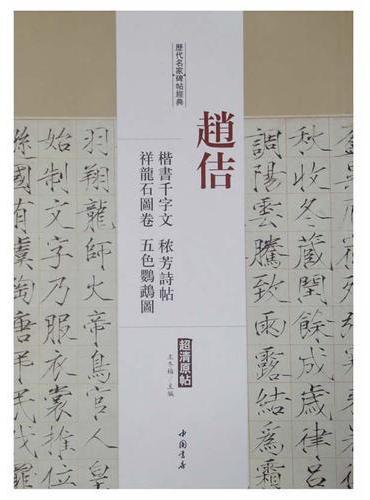 歷代名家碑帖經典
趙佶
楷書千字文 穠芳詩帖
祥龍石圖卷 五色鸚鵡圖
超清原帖
王冬梅 主編
中國書店
秋收冬藏閏餘成歲律呂
調陽雲騰致雨露結為霜
羽翔龍師火帝鳥官人
始制文字乃服衣裳推位